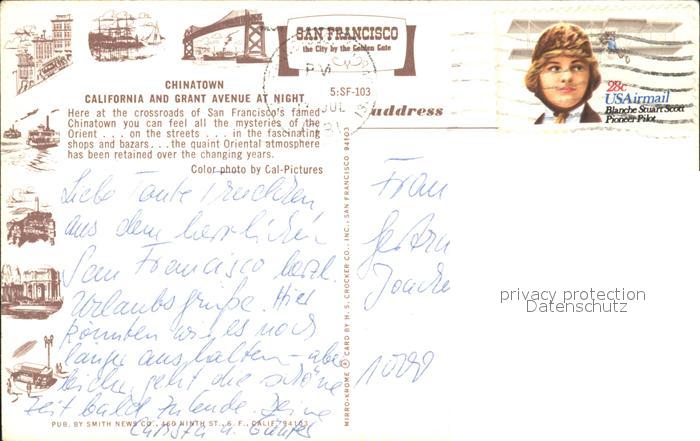 SAN FRANCISCO
the City by the Golden Gate
CHINATOWN
CALIFORNIA AND GRANT AVENUE AT NIGHT
5:SF-103
Here at the crossroads of San Francisco's famed
Chinatown you can feel all the mysteries of the
Orient . . . on the streets . . . in the fascinating
shops and bazars . . . the quaint Oriental atmosphere
has been retained over the changing years.
Color photo by Cal-Pictures
address
28c
USAirmail
Blanche Stuart Scott
Pioneer Pilot
JUL
Liebe Tante
aus dem herrlichen
San Francisco herzl.
Urlaubsgrüße. Hier
könnten wir es noch
lange aushalten – aber
leider geht die schöne
Zeit bald zu Ende. Deine
Christa u. Günter
Frau
1000
privacy protection
Datenschutz
MIRRO-KROME ® CARD BY H. S. CROCKER CO., INC., SAN FRANCISCO 94103
PUB. BY SMITH NEWS CO., 460 NINTH ST., S. F., CALIF. 94103